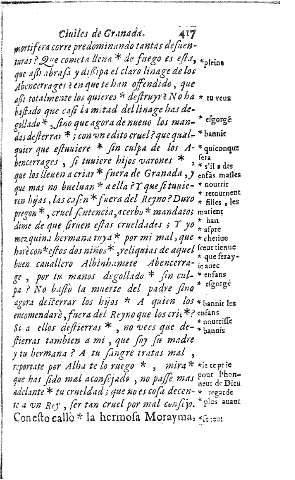 Ciuiles de Granada. 417
mortifera corre predominando tantas desuen-
turas? Que cometa llena * de fuego es esta,
que assi abrasa y dissipa el claro linage de los
Abencerrages? en que te han offendido, que
assi totalmente los quieres * destruyr? No ha
bastado que casi la mitad del linage has de-
gollado *, sino que agora de nueuo los man-
das desterrar *; con vn edito cruel? que qual-
quier que estuuiere * sin culpa de los A-
bencerrages, si tuuiere hijos varones *,
que los lleuen a criar * fuera de Granada, y
que mas no bueluan * a ella? Y que si tuuie-
ren hijas, las casen * fuera del Reyno? Duro
pregon *, cruel sentencia, acerbo * mandatos
dime de que siruen estas crueldades; Y yo
mezquina hermana tuya * por mi mal, que
harè con * estos dos niños *, reliquias de aquel
buen cauallero Albinhamete Abencerra-
ge, por tu manos degollado * sin cul-
pa? No bastò la muerte del padre sino
agora desterrar los hijos * A quien los
encomendarè, fuera del Reyno que los crie *?
Si a ellos destierras *, no vees que de-
stierras tambien a mi, que soy su madre
y tu hermana? A tu sangre tratas mal,
reportate por Alha te lo ruego *, mira *
que has sido mal aconsejado, no passe mas
adelante * tu crueldad; que no es cosa decen-
te a vn Rey, ser tan cruel por mal consejo.
Con esto callò * la hermosa Morayma,
* pleine
* tu veux
* esgorgé
* bannir
* quiconque
sera
* s'il a des
enfās masles
* nourrir
* retournent
* filles, les
marient
* han
* aspre
* cherine
ie auec
* enfans
* esgorgé
* bannir les
enfans
* nourrisse
* bannis
* ie te prie
pour l'hon-
neur de Dieu
* regarde
* plus auant